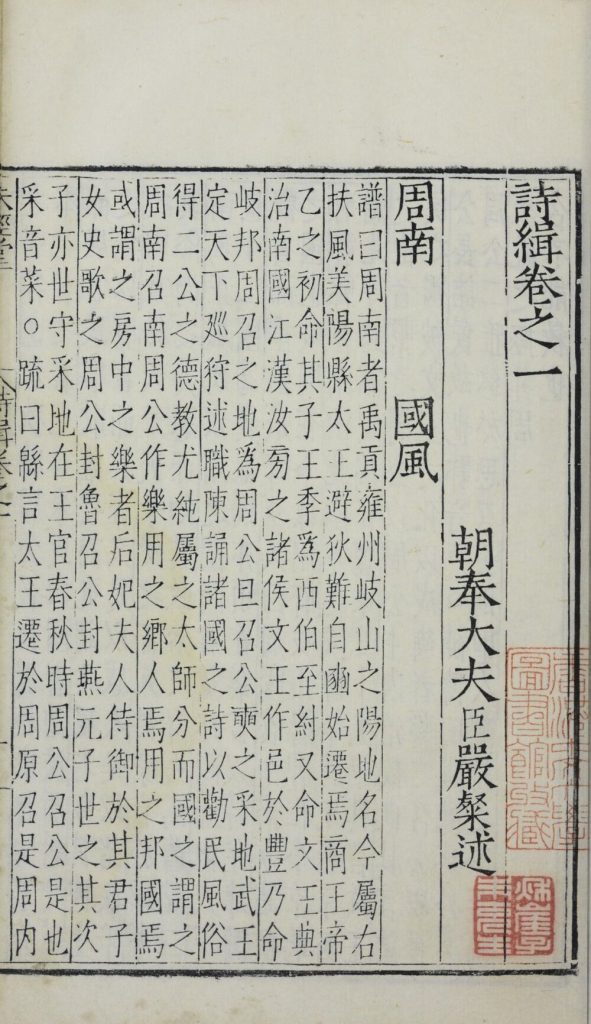 詩緝卷之一
朝奉大夫臣嚴粲述
周南　國風
譜曰周南者禹貢雍州岐山之陽地名今屬右
扶風美陽縣太王避狄難自豳始遷焉商王帝
乙之初命其子王季為西伯至紂又命文王典
治南國江漢汝旁之諸侯文王作邑於豐乃命
岐邦周召之地為周公旦召公奭之采地武王
定天下廵狩述職陳誦諸國之詩以勸民風俗
得二公之德教尤純屬之太師分而國之謂之
周南召南周公作樂用之鄉人焉用之邦國焉
或謂之房中之樂者后妃夫人侍御於其君子
女史歌之周公封魯召公封燕元子世之其次
子亦世守采地在王官春秋時周公召公是也
采音菜○疏曰緜言太王遷於周原召是周内
詩緝卷之一
圖書館收藏